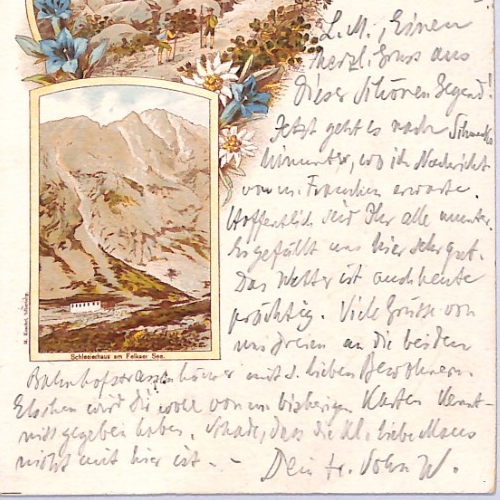 L. M., Einen
herzl. Gruss aus
dieser schönen Gegend!
Jetzt geht es nach Schmecks
hinunter, wo ich Nachricht
von m. Frauchen erwarte.
Hoffentlich seid Ihr alle munter.
Es gefällt uns hier sehr gut.
Das Wetter ist auch heute
prächtig. Viele Grüsse von
uns dreien an die beiden
Bahnhofstrassenhäuser mit d. lieben Bewohnern.
Elschen wird Dir wohl von m. bisherigen Karten Kennt-
niss gegeben haben. Schade, dass die kl. liebe Maus
nicht mit hier ist. - Dein tr. Sohn W.
Schlesierhaus am Felkaer See.